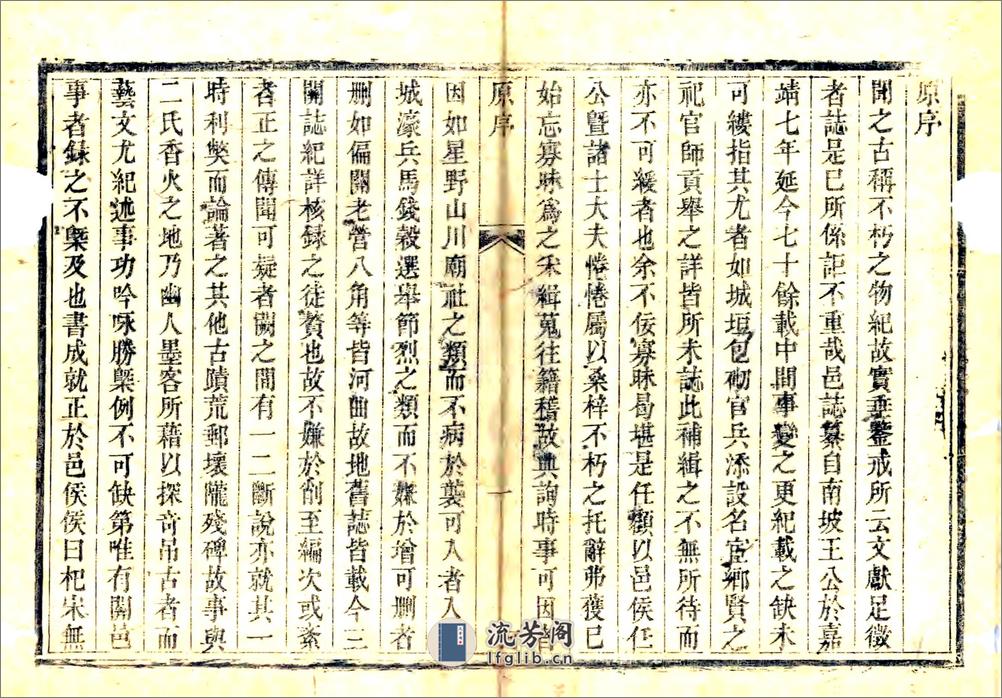 原序
聞之古稱不朽之物紀故實垂鑒戒所云文獻足徵
者誌是已所係詎不重哉邑誌纂自南坡王公於嘉
靖七年延今七十餘載中間事變之更紀載之缺未
可縷指其尤者如城垣包砌官兵添設名宦鄉賢之
祀官師貢舉之詳皆所未誌此補緝之不無所待而
亦不可緩者也余不佞寡昧曷堪是任顧以邑侯任
公暨諸士大夫惓惓屬以桑梓不朽之托辭弗獲已
始忘寡昧爲之采緝蒐往籍稽故典詢時事可因者
原序
一
因如星野山川廟社之類而不病於襲可入者入
城濠兵馬錢穀選舉節烈之類而不嫌於增可删者
删如偏關老營八角等皆河曲故地舊誌皆載今三
關誌紀詳核録之徒贅也故不嫌於削至編次或紊
者正之傳聞可疑者闕之間有一二斷說亦就其一
時利獘而論著之其他古蹟荒郵壞隴殘碑故事與
二氏香火之地乃幽人墨客所藉以探奇吊古者而
藝文尤紀述事功吟咏勝槩例不可缺第唯有關邑
事者録之不槩及也書成就正於邑侯侯曰杞宋無
流芳閣
lfglib.cn